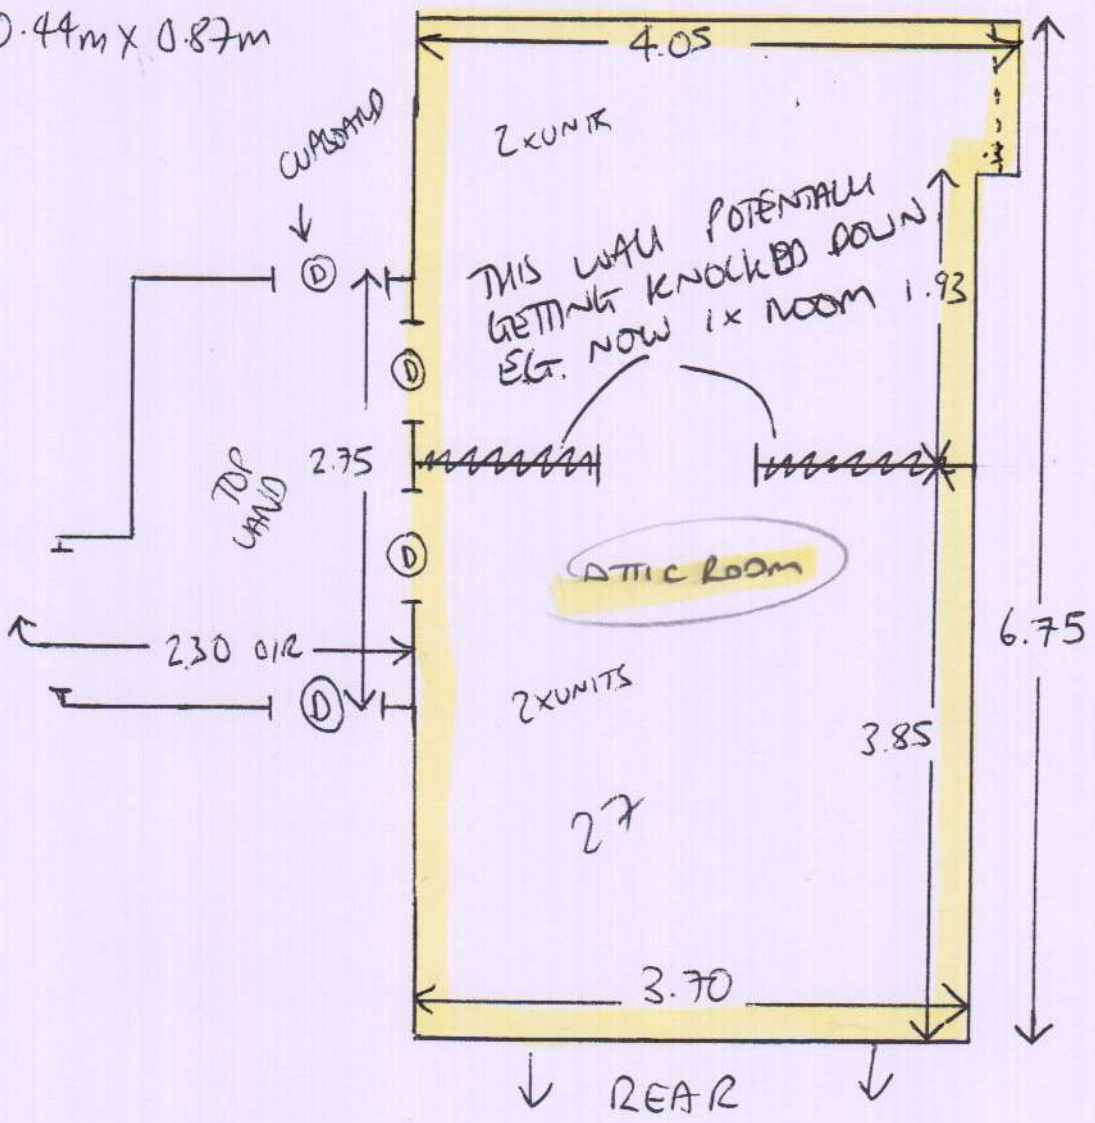 0.44m x 0.87m
4.05
CUPBOARD
2 x UNITS
D
THIS WALL POTENTIALLY
GETTING KNOCKED DOWN
EG. NOW 1x ROOM
1.93
D
2.75
TOP
LAND
D
ATTIC ROOM
6.75
2.30 O/R
2 x UNITS
D
3.85
27
3.70
REAR